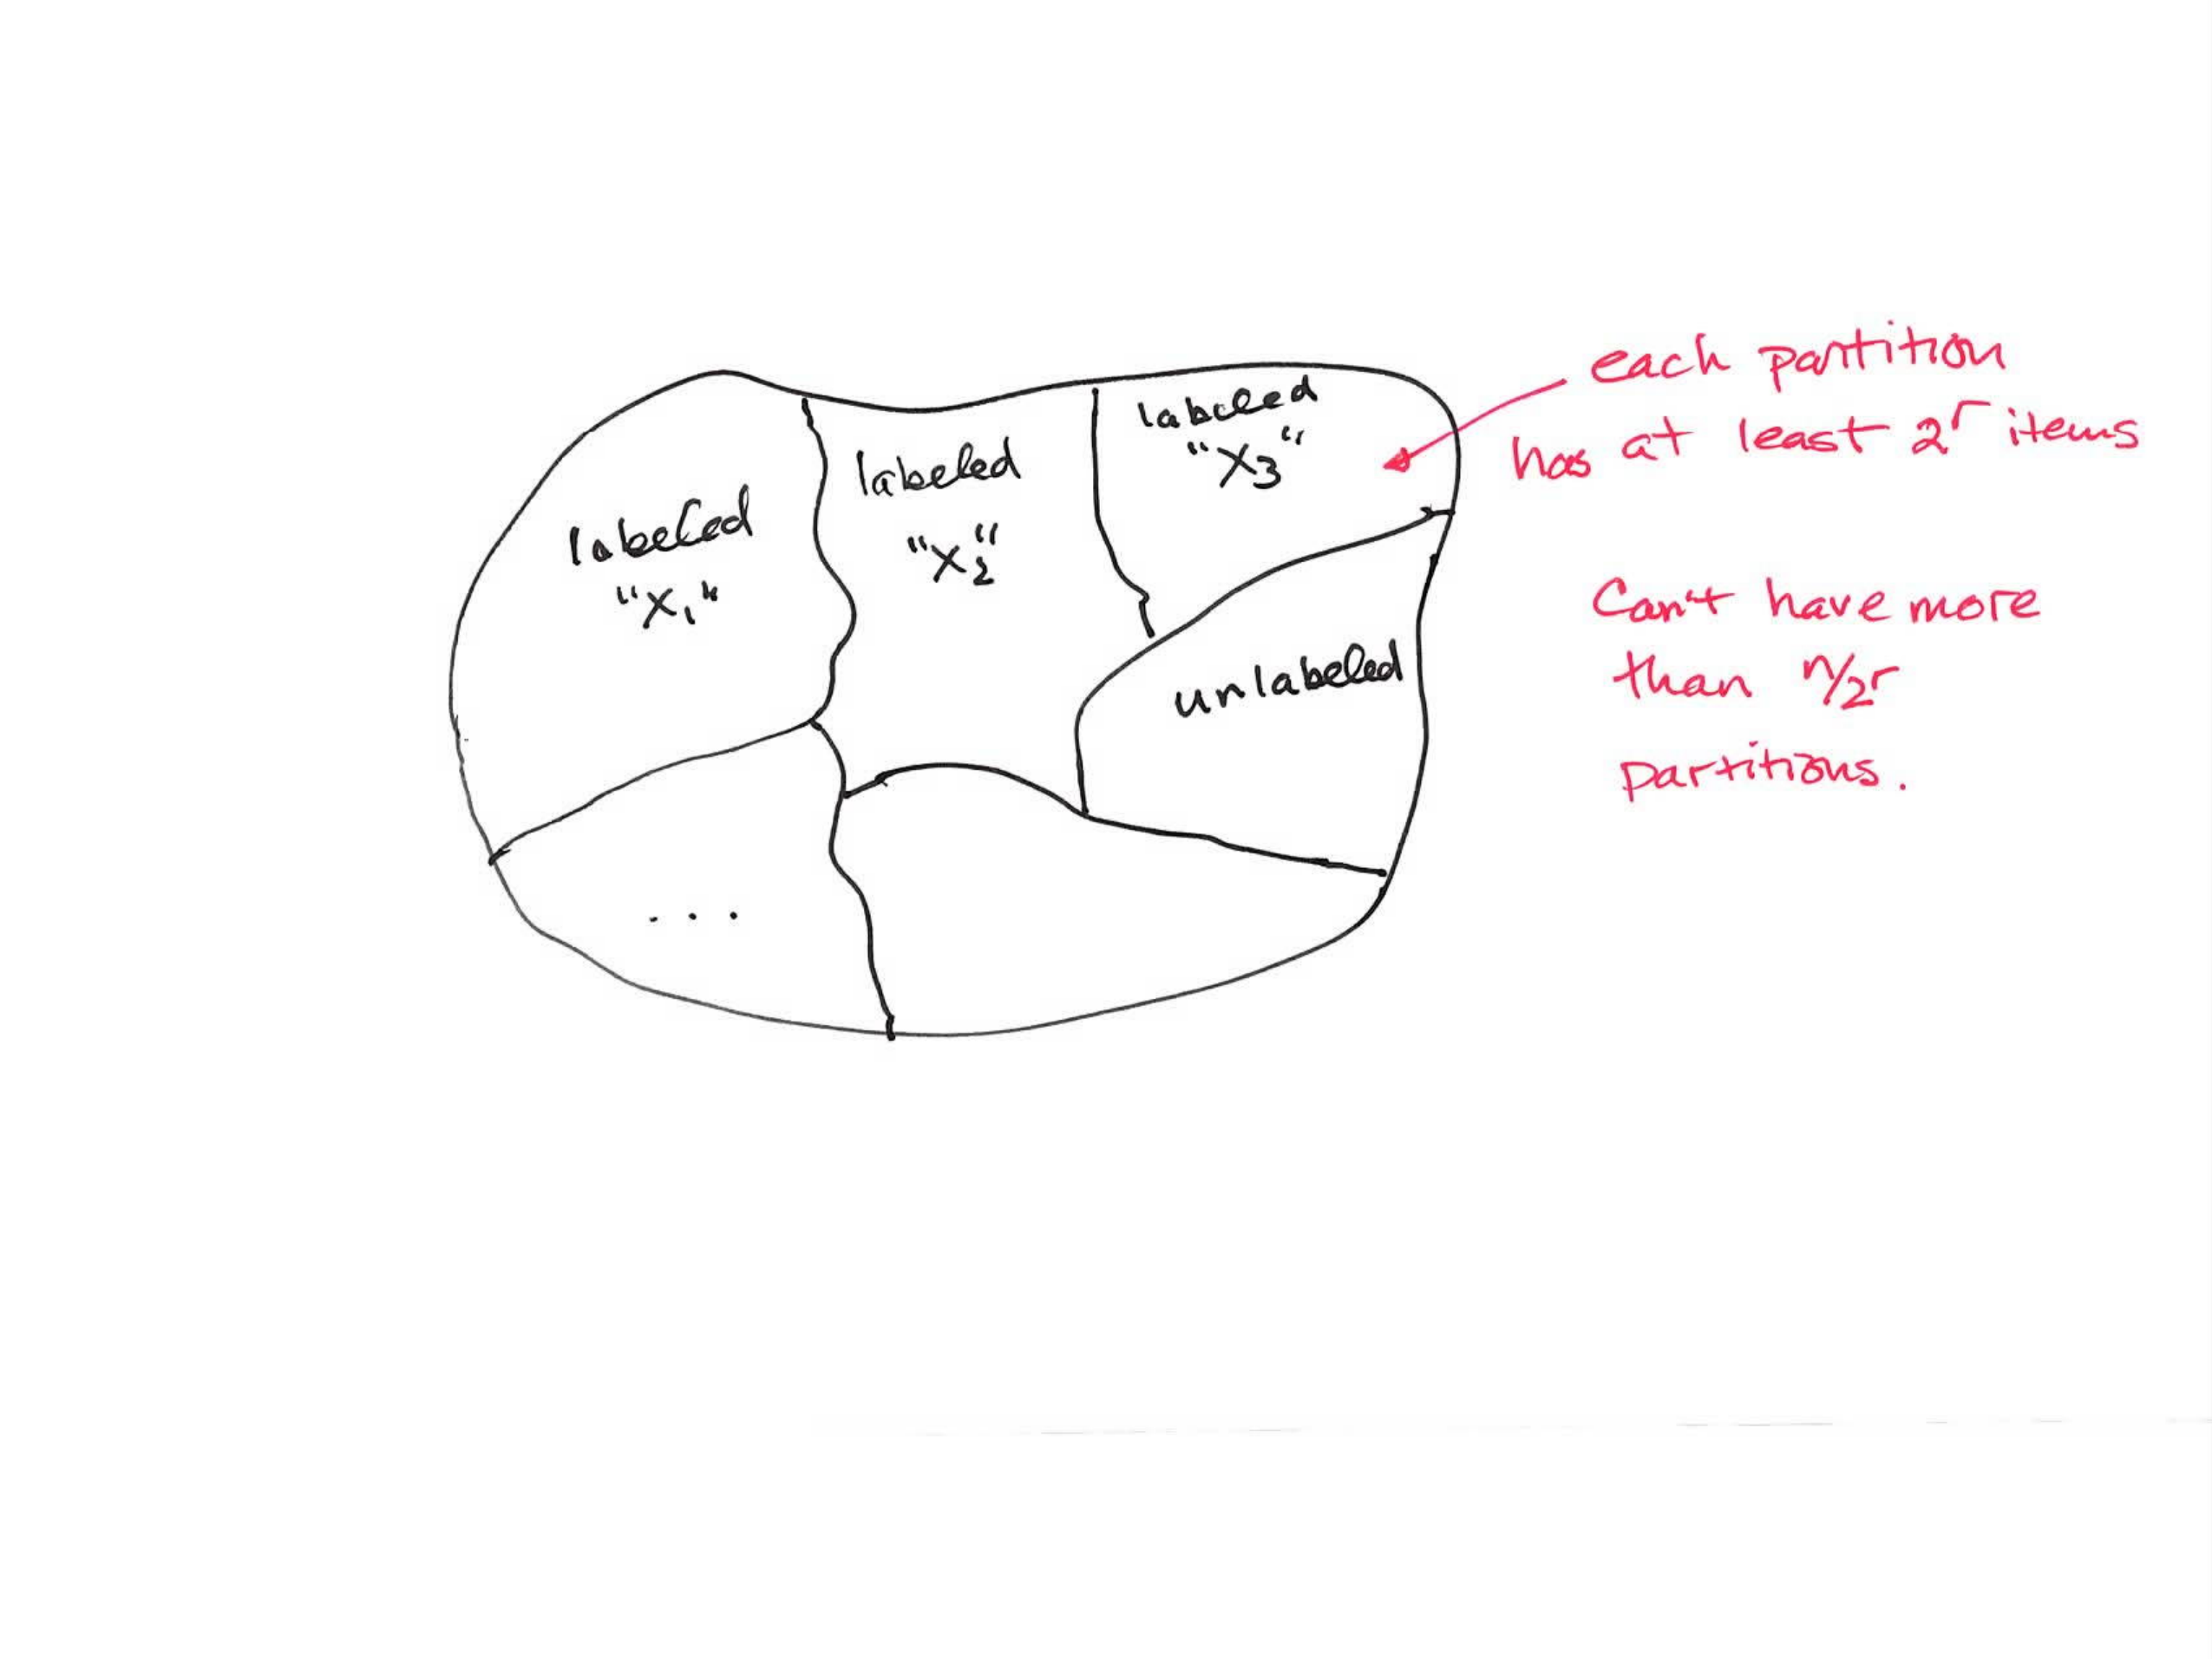 labeled
"X₁"
labeled
"X₂"
labeled
"X₃"
unlabeled
. . .
each partition
has at least 2ʳ items
Can't have more
than n/2ʳ
partitions.